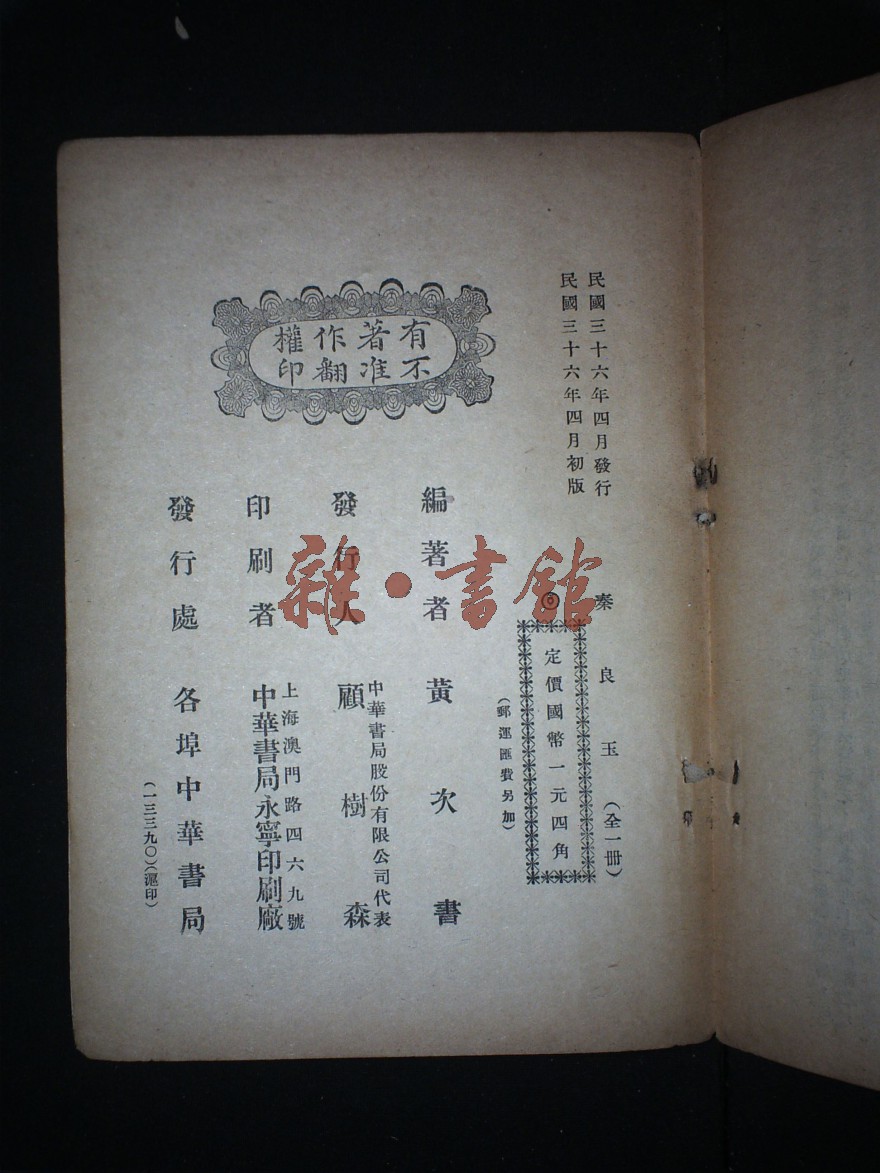 民國三十六年四月發行
民國三十六年四月初版
有著作權
不准翻印
秦良玉（全一冊）
◎
定價國幣一元四角
（郵運匯費另加）
編著者 黃次書
發行人 中華書局股份有限公司代表
顧樹森
印刷者 上海澳門路四六九號
中華書局永寧印刷廠
發行處 各埠中華書局
（一三三九〇）（滬印）
雜·書館